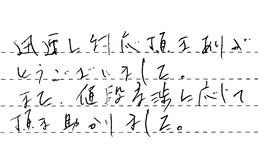 迅速に対応頂きありが
とうございました。
また、値段交渉に応じて
頂き助かりました。